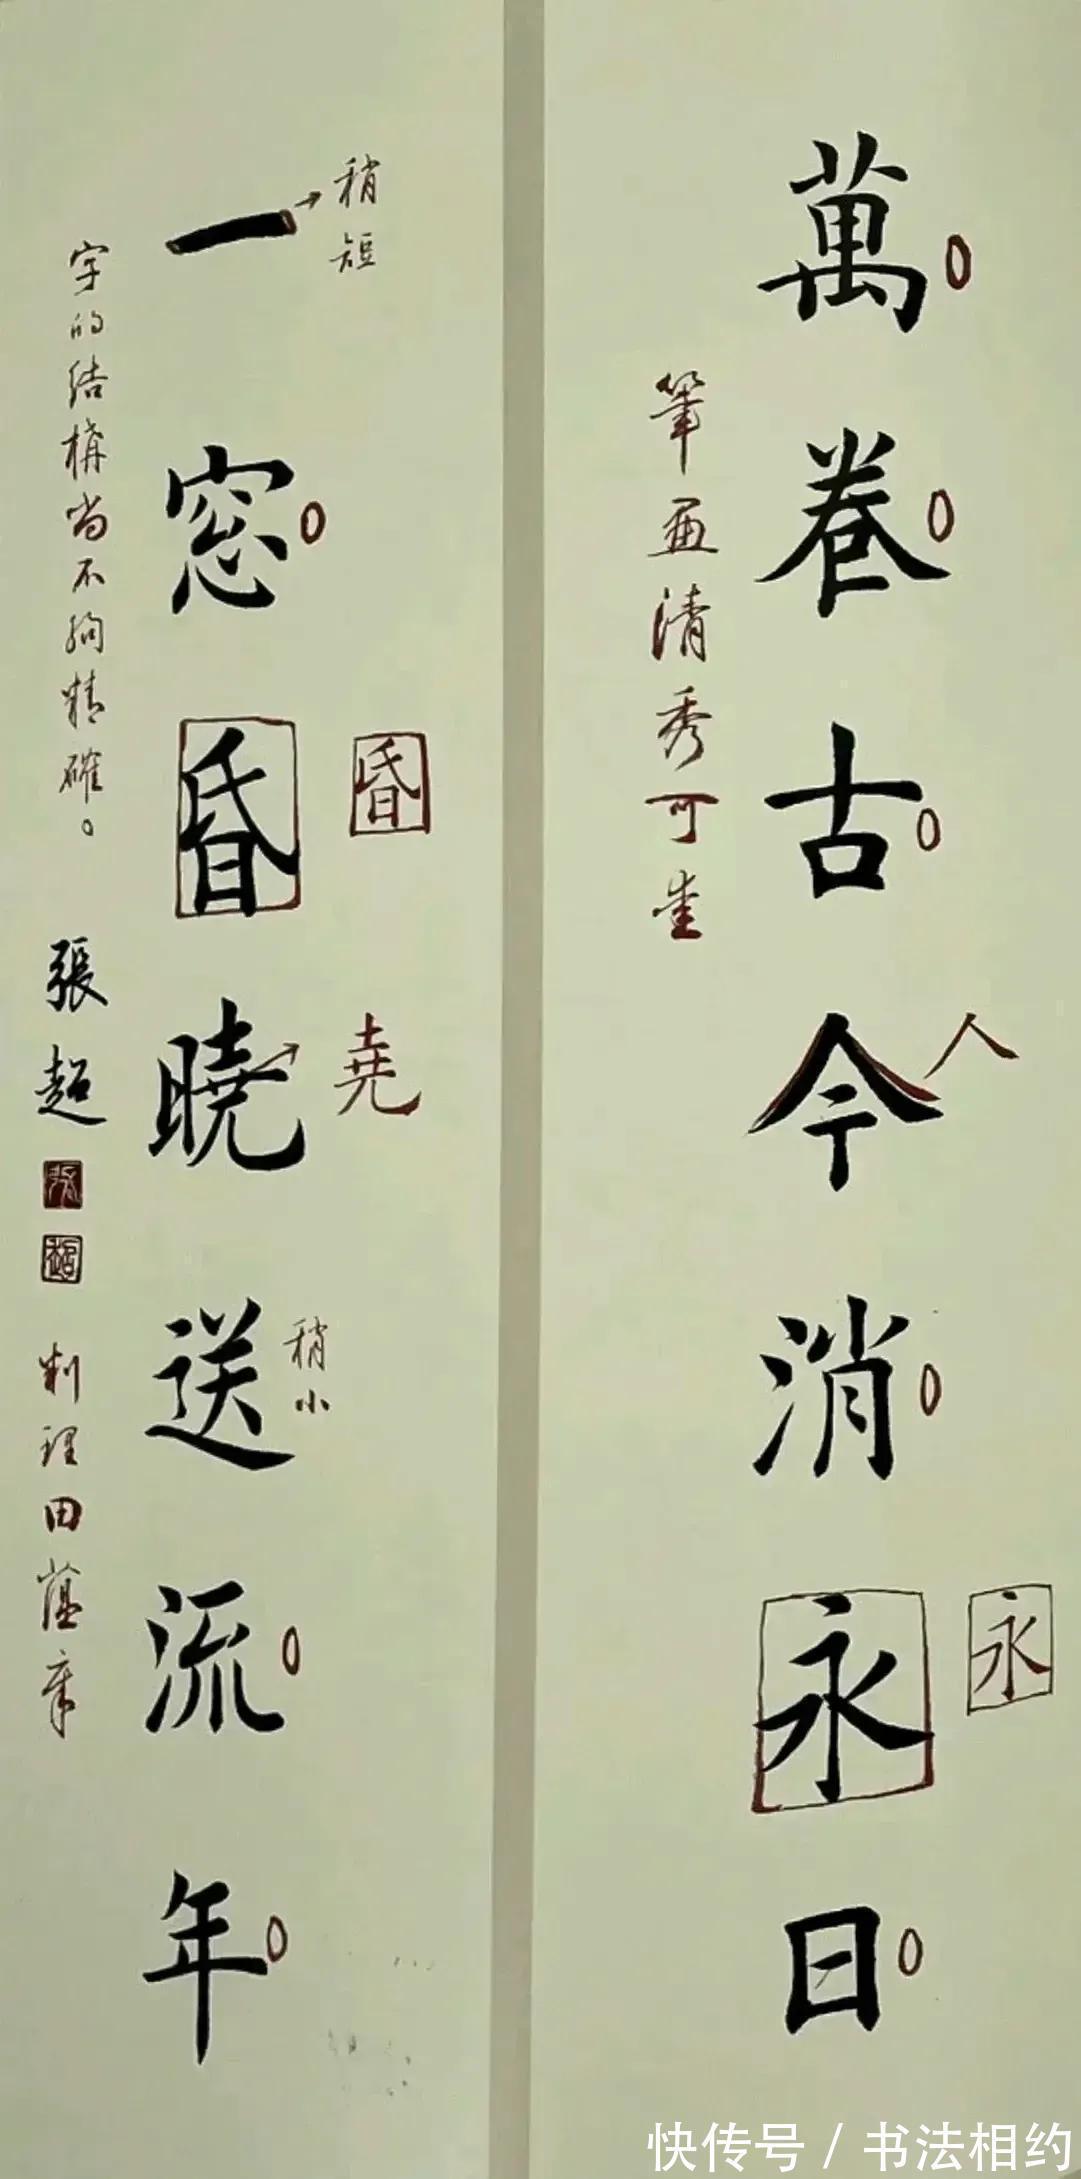 萬卷古今消永日
人
永
筆畫清秀可佳
一窓昏曉送流年
稍短
昏
堯
稍小
字的结構尚不夠精確。
張超
快传号 / 书法相约